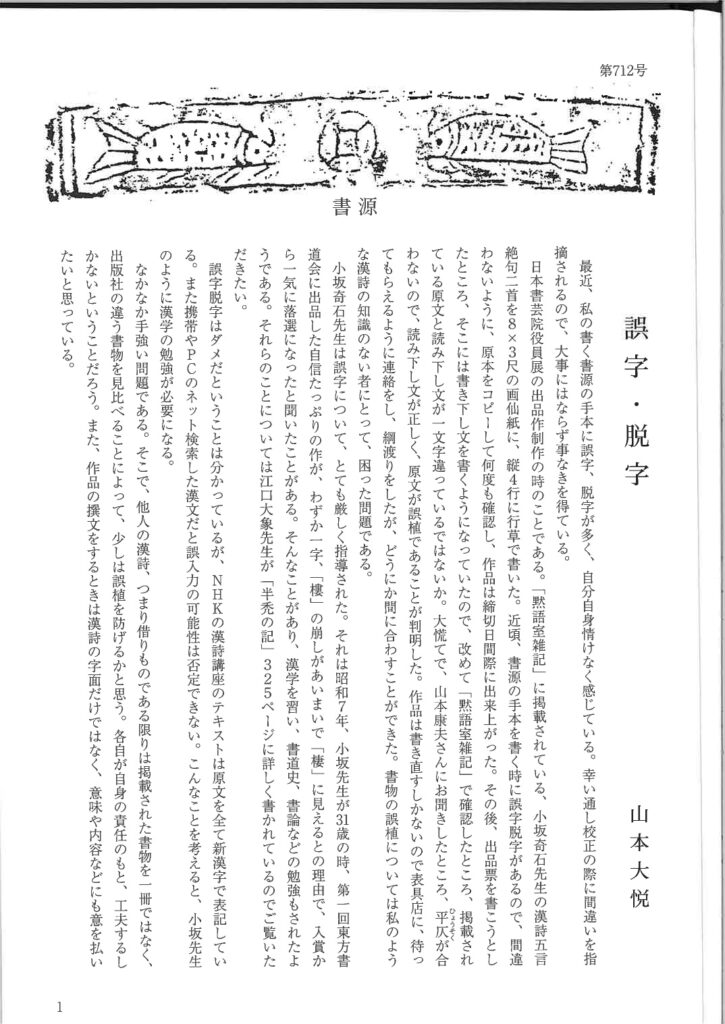 第712号
書源
誤字・脱字
山本大悦
最近、私の書く書源の手本に誤字、脱字が多く、自分自身情けなく感じている。幸い通し校正の際に間違いを指
摘されるので、大事にはならず事なきを得ている。
日本書芸院役員展の出品作制作の時のことである。「黙語室雑記」に掲載されている、小坂奇石先生の漢詩五言
絶句二首を8×3尺の画仙紙に、縦4行に行草で書いた。近頃、書源の手本を書く時に誤字脱字があるので、間違
わないように、原本をコピーして何度も確認し、作品は締切日間際に出来上がった。その後、出品票を書こうとし
たところ、そこには書き下し文を書くようになっていたので、改めて「黙語室雑記」で確認したところ、掲載され
ている原文と読み下し文が一文字違っているではないか。大慌てで、山本康夫さんにお聞きしたところ、平仄が合
ひょうそく
わないので、読み下し文が正しく、原文が誤植であることが判明した。作品は書き直すしかないので表具店に、待っ
てもらえるように連絡をし、綱渡りをしたが、どうにか間に合わすことができた。書物の誤植については私のよう
な漢詩の知識のない者にとって、困った問題である。
小坂奇石先生は誤字について、とても厳しく指導された。それは昭和7年、小坂先生が31歳の時、第一回東方書
道会に出品した自信たっぷりの作が、わずか一字、「樓」の崩しがあいまいで「棲」に見えるとの理由で、入賞か
ら一気に落選になったと聞いたことがある。そんなことがあり、漢学を習い、書道史、書論などの勉強もされたよ
うである。それらのことについては江口大象先生が「半禿の記」325ページに詳しく書かれているのでご覧いた
だきたい。
誤字脱字はダメだということは分かっているが、NHKの漢詩講座のテキストは原文を全て新漢字で表記してい
る。また携帯やPCのネット検索した漢文だと誤入力の可能性は否定できない。こんなことを考えると、小坂先生
のように漢学の勉強が必要になる。
なかなか手強い問題である。そこで、他人の漢詩、つまり借りものである限りは掲載された書物を一冊ではなく、
出版社の違う書物を見比べることによって、少しは誤植を防げるかと思う。各自が自身の責任のもと、工夫するし
かないということだろう。また、作品の撰文をするときは漢詩の字面だけではなく、意味や内容などにも意を払い
たいと思っている。
1